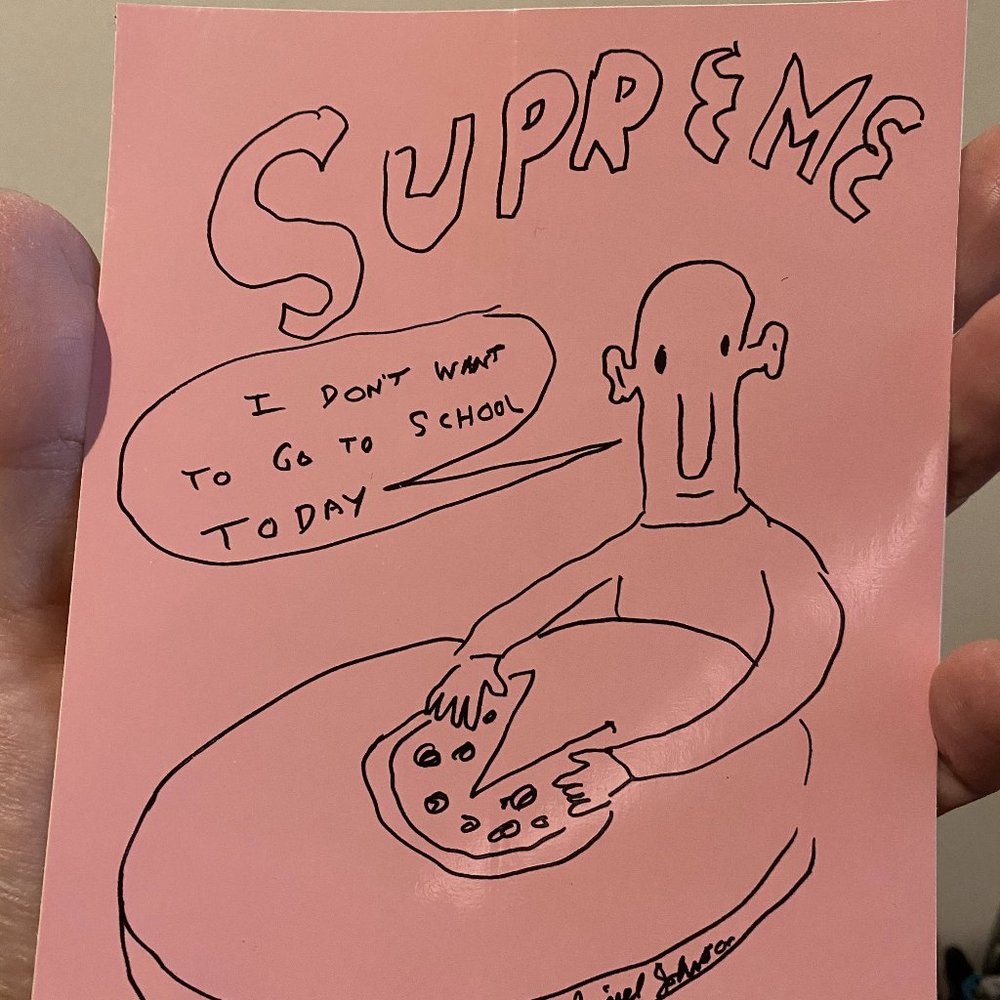 SUPREME
I DON'T WANT
TO GO TO SCHOOL
TODAY
Johnston